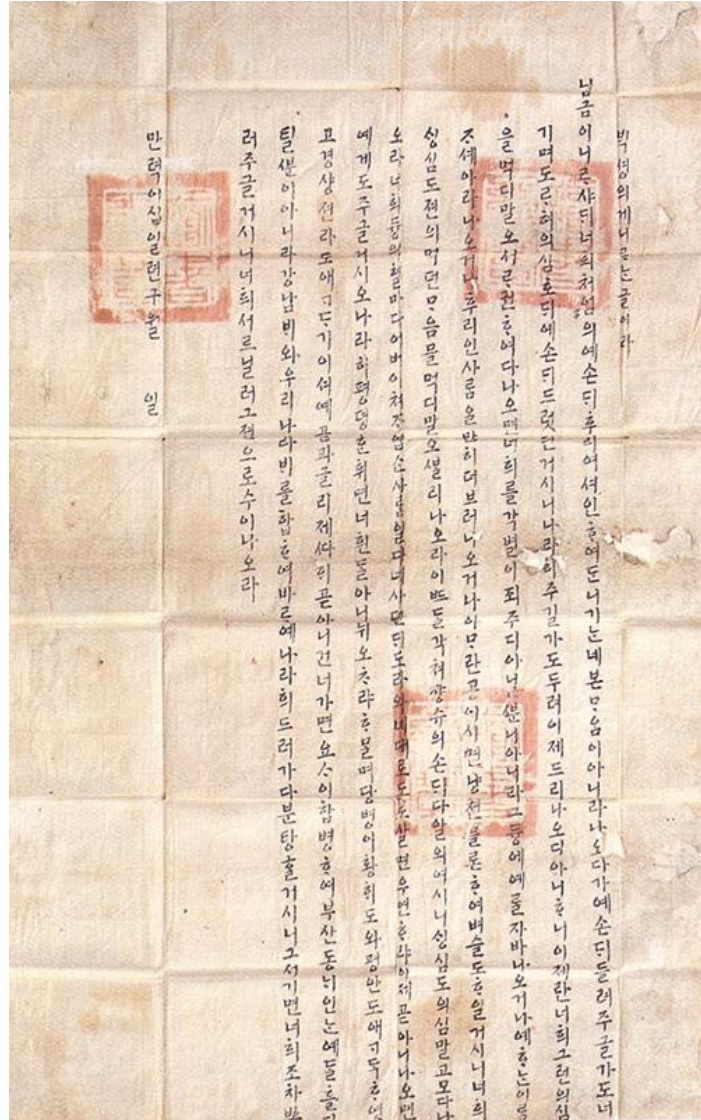 ᄇᆡᆨ셩의게니ᄅᆞ는글이라
님금이니ᄅᆞ샤ᄃᆡ너희처엄의예손ᄃᆡ후리여셔인ᄒᆞ여ᄃᆞᆫ니기ᄂᆞᆫ네본ᄆᆞ음이아니라나오다가예손ᄃᆡ들려주글가도너
기며도ᄅᆞ혀의심ᄒᆞᄃᆡ예손ᄃᆡ드럿던거시니나라히주길가도두려이제드리나오디아니ᄒᆞ니이제란너희그런의심
을먹디말오서ᄅᆞ권ᄒᆞ여다나오면너희를각별이죄주디아닐ᄲᅮᆫ니아니라그듕에예ᄅᆞᆯ자바나오거나예ᄒᆞᄂᆞᆫ이ᄅᆞᆯ
ᄌᆞ셰아라나오거나후리인사ᄅᆞᆷ을만히더브러나오거나아ᄆᆞ란공이시면냥쳔을론ᄒᆞ여벼슬도ᄒᆞ일거시니너희
ᄉᆡᆼ심도젼의먹던ᄆᆞ음믈먹디말오ᄲᆞᆯ리나오라이ᄠᅳᆮ들각쳐쟝슈의손ᄃᆡ다알외여시니ᄉᆡᆼ심도의심말고모다나
오라너희듕의혈마다어버이쳐ᄌᆞ업슨사ᄅᆞᆷ일다네사던ᄃᆡ도라와녜대로도로살면우연ᄒᆞ랴이제곧아니나오면
예게도주글거시오나라히평뎡ᄒᆞᆫ휘면너흰들아니뉘오ᄎᆞ랴ᄒᆞ믈며당병이황ᄒᆡ도와평안도애ᄀᆞ득ᄒᆞ엿
고경샹젼라도애ᄀᆞ득기이셔예곧과글리제ᄯᅡᄒᆡ곧아니건너가면요ᄉᆞ이합병ᄒᆞ여부산동ᄂᆡ인ᄂᆞᆫ예ᄃᆞᆯ흘다
틸ᄲᅮᆫ이아니라강남ᄇᆡ와우리나라ᄇᆡ를합ᄒᆞ여바ᄅᆞ예나라희드러가다분탕ᄒᆞᆯ거시니그저기면너희조차ᄡᅳ
러주글거시니너희서ᄅᆞ닐러그젼으로수이나오라
만력이십일년구월 일